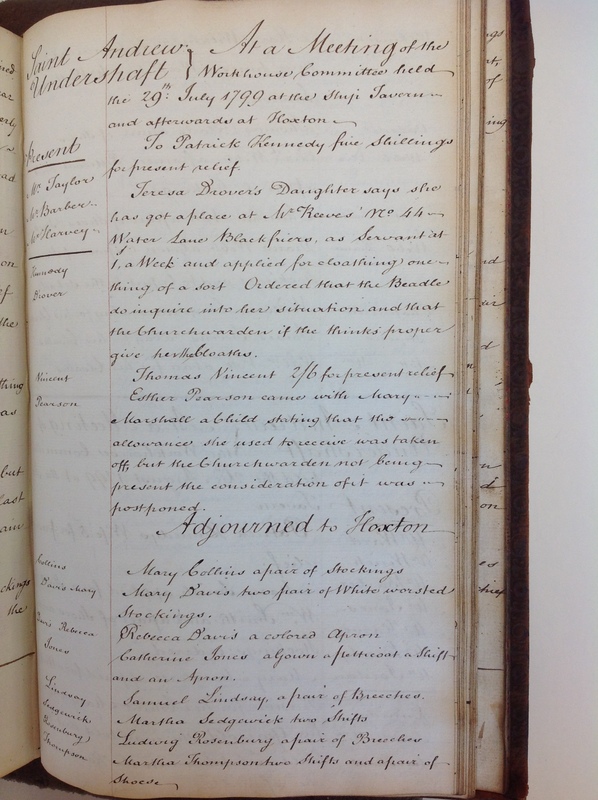 Saint Andrew } At a Meeting of the
Undershaft Workhouse Committee held
the 29th July 1799 at the Ship Tavern
and afterwards at Hoxton
Present
Mr Taylor
Mr Barber
Mr Harvey
To Patrick Kennedy five Shillings
for present relief.
Teresa Drover's Daughter says she
has got a place at Mr Reeves' No 44
Water Lane Blackfriers, as Servant at
Kennedy
1/ a Week and applied for cloathing one
Drover
thing of a sort Ordered that the Beadle
do inquire into her situation and that
the Churchwarden if the thinks proper
give her the Cloaths.
Vincent
Thomas Vincent 2/6 for present relief
Pearson
Esther Pearson came with Mary
Marshall a Child stating that the
allowance she used to receive was taken
off, but the Churchwarden not being
present the consideration of it was
postponed.
Adjourned to Hoxton
Collins
Mary Collins a pair of Stockings
Davis Mary
Mary Davis two pair of White worsted
Stockings.
Davis Rebecca
Rebecca Davis a colored Apron
Jones
Catherine Jones a Gown a petticoat a Shift
and an Apron.
Lindsay
Samuel Lindsay, a pair of Breeches.
Sedgewick
Martha Sedgewick two Shifts
Rosenburg
Ludwig Rosenburg a pair of Breeches
Thompson
Martha Thompson two Shifts and a pair of
Shoese